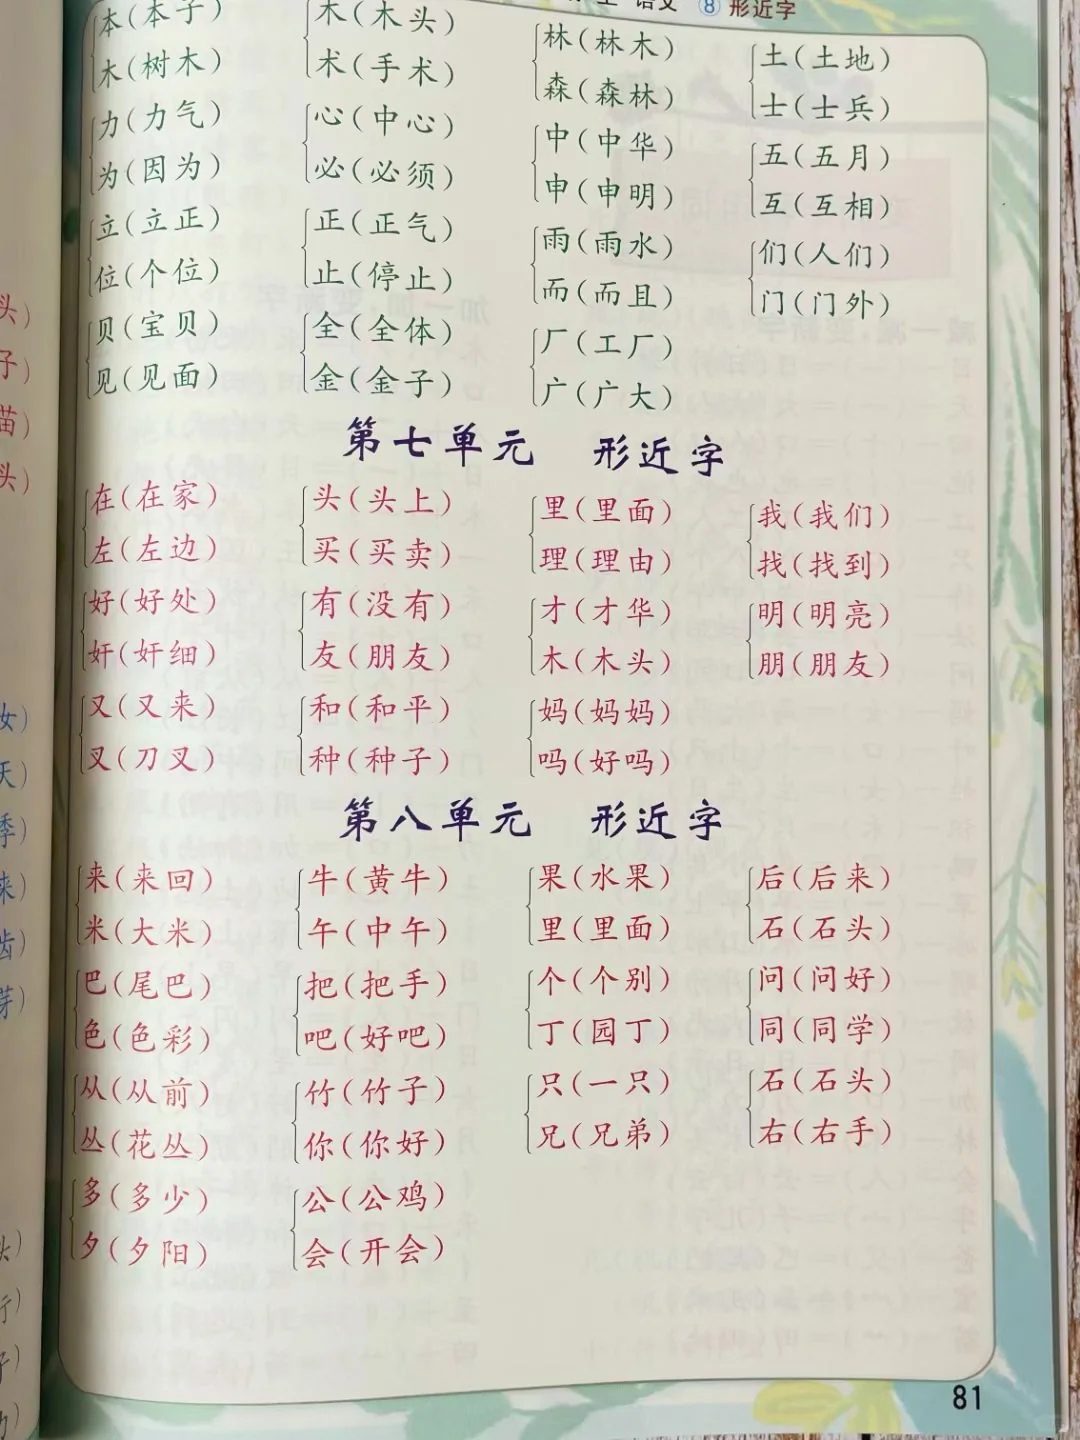 语文 ⑧ 形近字
本(本子) 木(木头) 林(林木) 土(土地)
木(树木) 术(手术) 森(森林) 士(士兵)
力(力气) 心(中心) 中(中华) 五(五月)
为(因为) 必(必须) 申(申明) 互(互相)
立(立正) 正(正气) 雨(雨水) 们(人们)
位(个位) 止(停止) 而(而且) 门(门外)
贝(宝贝) 全(全体) 厂(工厂)
见(见面) 金(金子) 广(广大)
第七单元 形近字
在(在家) 头(头上) 里(里面) 我(我们)
左(左边) 买(买卖) 理(理由) 找(找到)
好(好处) 有(没有) 才(才华) 明(明亮)
奸(奸细) 友(朋友) 木(木头) 朋(朋友)
又(又来) 和(和平) 妈(妈妈)
叉(刀叉) 种(种子) 吗(好吗)
第八单元 形近字
来(来回) 牛(黄牛) 果(水果) 后(后来)
米(大米) 午(中午) 里(里面) 石(石头)
巴(尾巴) 把(把手) 个(个别) 问(问好)
色(色彩) 吧(好吧) 丁(园丁) 同(同学)
从(从前) 竹(竹子) 只(一只) 石(石头)
丛(花丛) 你(你好) 兄(兄弟) 右(右手)
多(多少) 公(公鸡)
夕(夕阳) 会(开会)
81